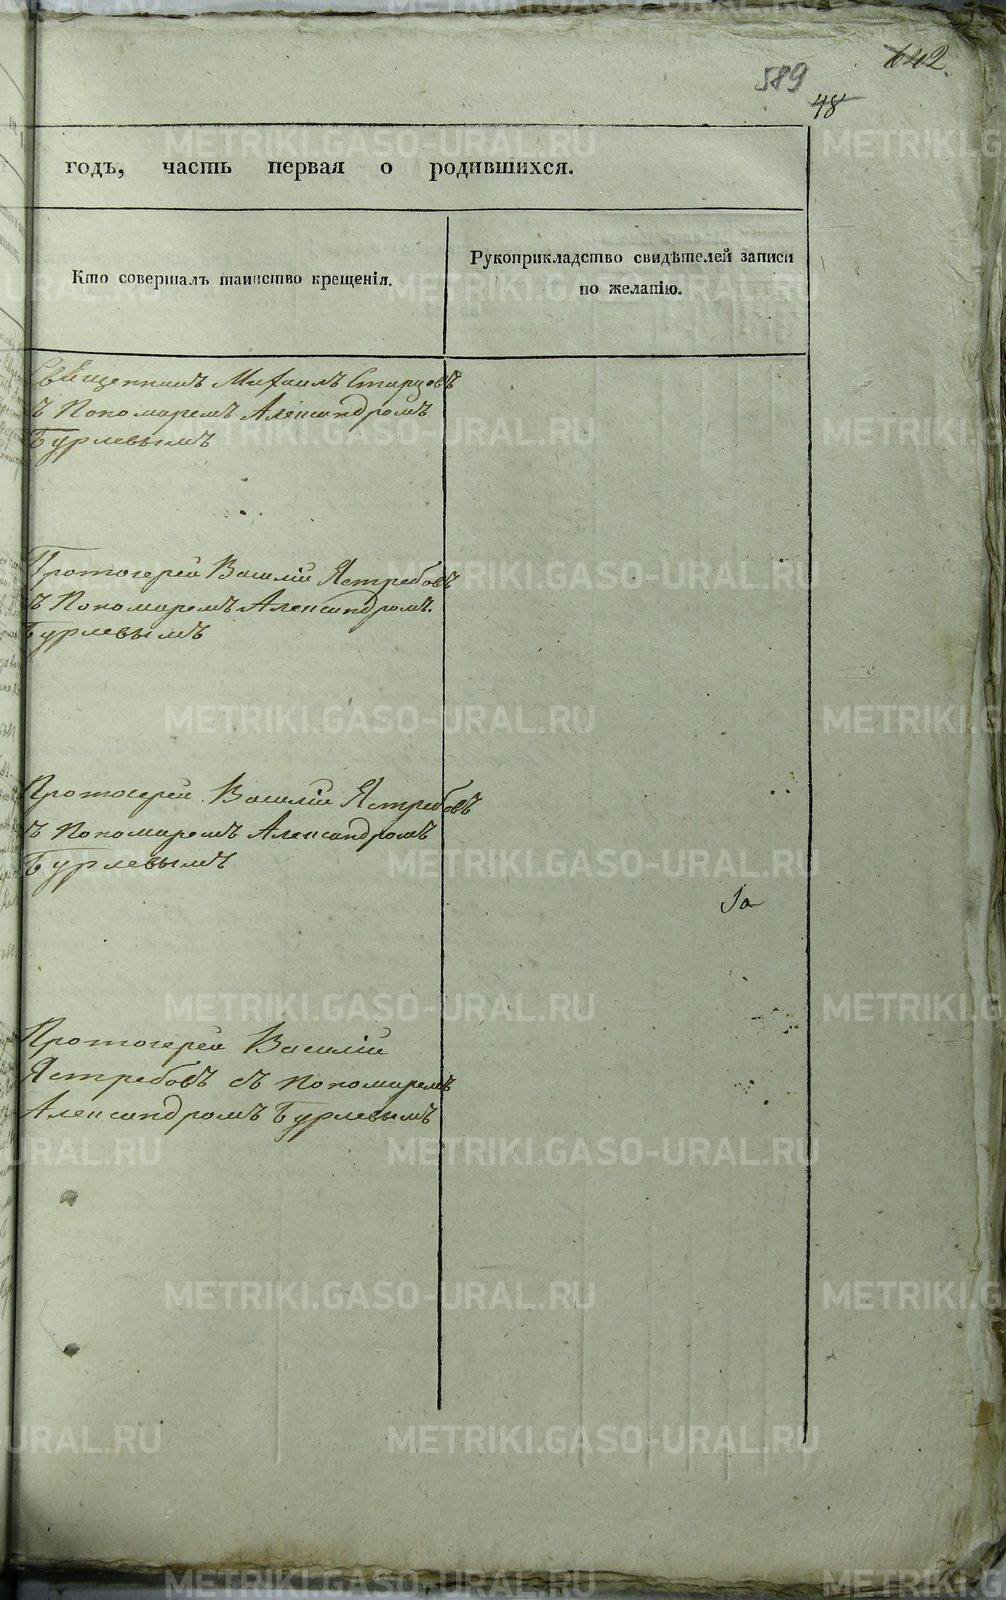 642.
589
48
годъ, часть первая о родившихся.
Кто совершалъ таинство крещенія.
Рукоприкладство свидѣтелей записи
по желанію.
Священникъ Михаилъ Старцовъ
съ Пономаремъ Александромъ
Бурлевымъ
Протоіерей Василій Ястребовъ
съ Пономаремъ Александромъ
Бурлевымъ
Протоіерей Василій Ястребовъ
съ Пономаремъ Александромъ
Бурлевымъ
Протоіерей Василій
Ястребовъ съ Пономаремъ
Александромъ Бурлевымъ
METRIKI.GASO-URAL.RU